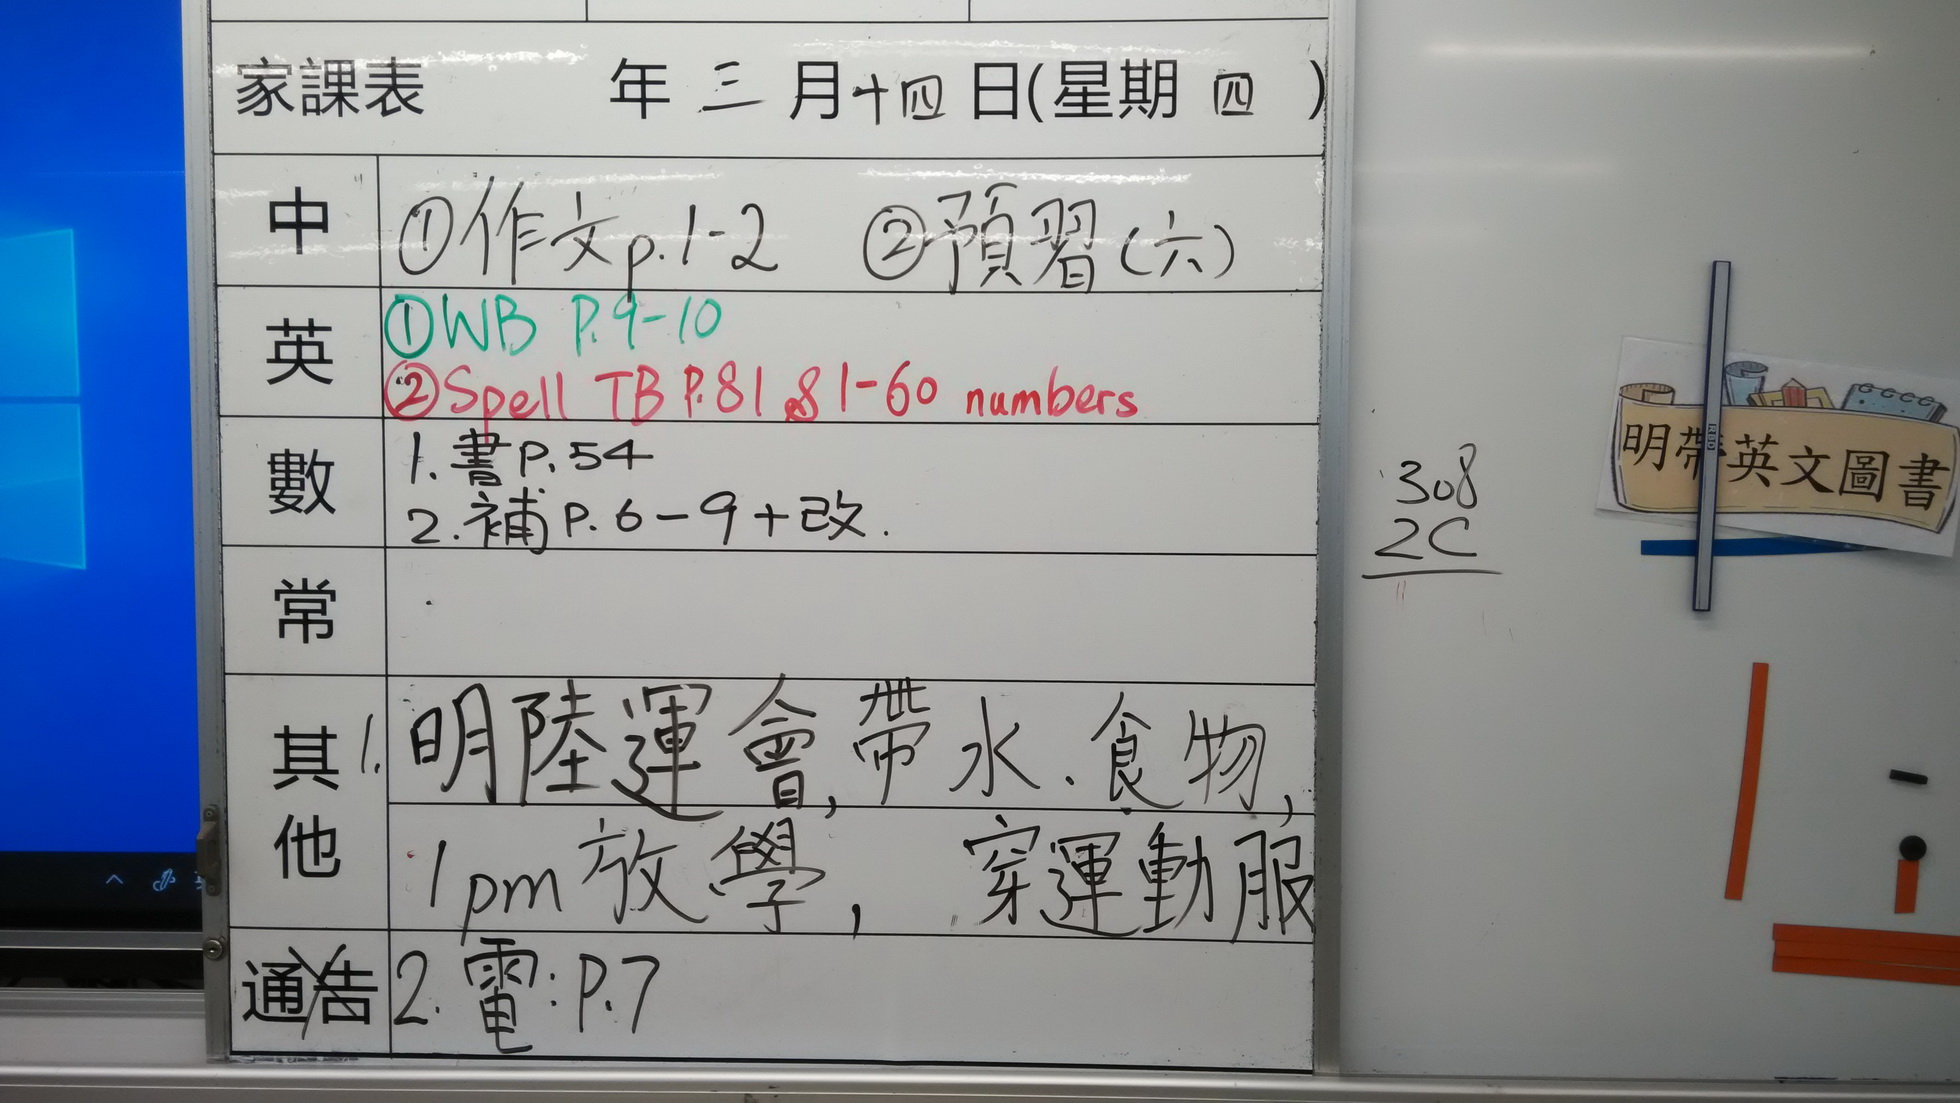 家課表 年 三 月 十四 日(星期 四 )
中 ①作文p.1-2 ②預習(六)
英 ①WB P.9-10
②Spell TB P.81 & 1-60 numbers
數 1. 書P.54
2. 補P.6-9+改.
常
其他 1. 明陸運會,帶水、食物,
1pm放學, 穿運動服
通告 2. 電:P.7
308
2C
明帶英文圖書